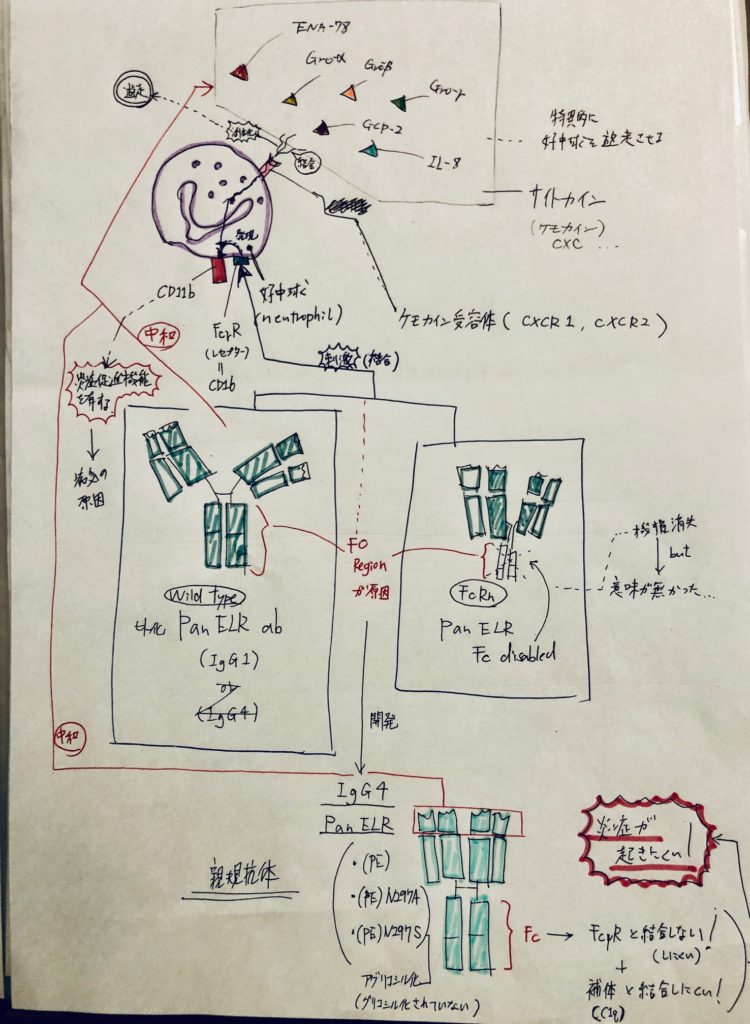 ENA-78
Gro-α
Groβ
Gro-γ
GCP-2
IL-8
遊走
活性化
結合
特異的に
好中球を遊走させる
サイトカイン
(ケモカイン)
CXC ...
発現
CD11b
好中球
(neutrophil)
FcγR
(レセプター)
=
CD16
ケモカイン受容体 ( CXCR1, CXCR2 )
中和
刺激 (結合)
炎症促進機能
を有する
病気の
原因
FC
Region
が原因
機能消失
but
意味が無かった...
Wild type
Pan ELR ab
(IgG1)
or
(IgG4)
FcRn
Pan ELR
Fc disabled
中和
開発
IgG4
Pan ELR
・(PE)
・(PE) N297A
・(PE) N297S
アグリコシル化
(グリコシル化されていない)
親規抗体
Fc → FcγRと結合しない!
(しにくい)
+
補体と結合しにくい!
(C1q)
炎症が
起きにくい!